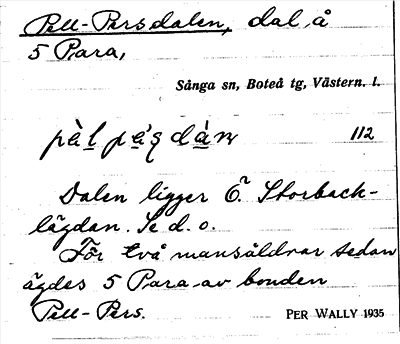 Pell-Persdalen, dal, å
5 Para,
Sånga sn, Boteå tg, Västern. l.
pàl pá̱ʂ dà̱n 112
Dalen ligger Ö. Storback-
lägdan. Se d. o.
För två mansåldrar sedan
ägdes 5 Para av bonden
Pell-Pers.
PER WALLY 1935